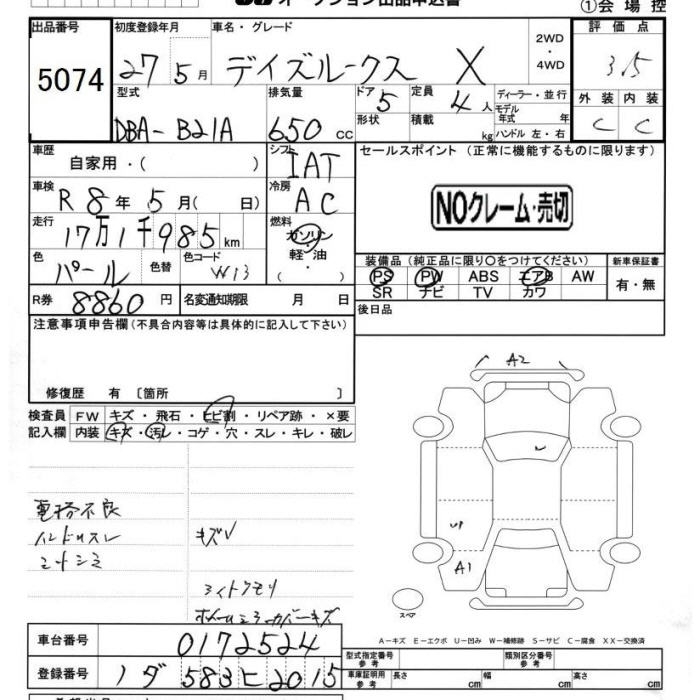 オークション出品申込書
①会場控
出品番号 初度登録年月 車名・グレード 評価点
5074 27 5月 デイズルークス X 2WD ・ 4WD 3.5
型式 排気量 ドア 5 定員 4人 ディーラー・並行 外装 内装
DBA-B21A 650 cc 形状 積載 kg モデル年式 年 ハンドル 左・右 C C
車歴 自家用・( ) シフト IAT セールスポイント (正常に機能するものに限ります)
車検 R8年5月( 日) 冷房 AC NOクレーム・売切
走行 17万1千985km 燃料 ガソリン・軽油・( )
装備品(純正品に限り○をつけてください) 新車保証書
色 パール 色替 色コード W13 PS PW ABS エアB AW 有・無
SR ナビ TV カワ
R券 8860円 名変通知期限 月 日 後日品
注意事項申告欄(不具合内容等は具体的に記入して下さい)
修復歴 有 〔箇所 〕
検査員 FW キズ・飛石・ヒビ割・リペア跡・×要
記入欄 内装 キズ・汚レ・コゲ・穴・スレ・キレ・破レ
A2
電格不良
ハンドルスレ
シートシミ
キズV
ライトクモリ
ドアミラーカバーキズ
A1
スペア
A-キズ E-エクボ U-凹み W-補修跡 S-サビ C-腐食 XX-交換済
車台番号 0172524
型式指定番号 参考 類別区分番号 参考
登録番号 ノダ 583 ヒ 2015 車庫証明用 参考 長さ cm 幅 cm 高さ cm